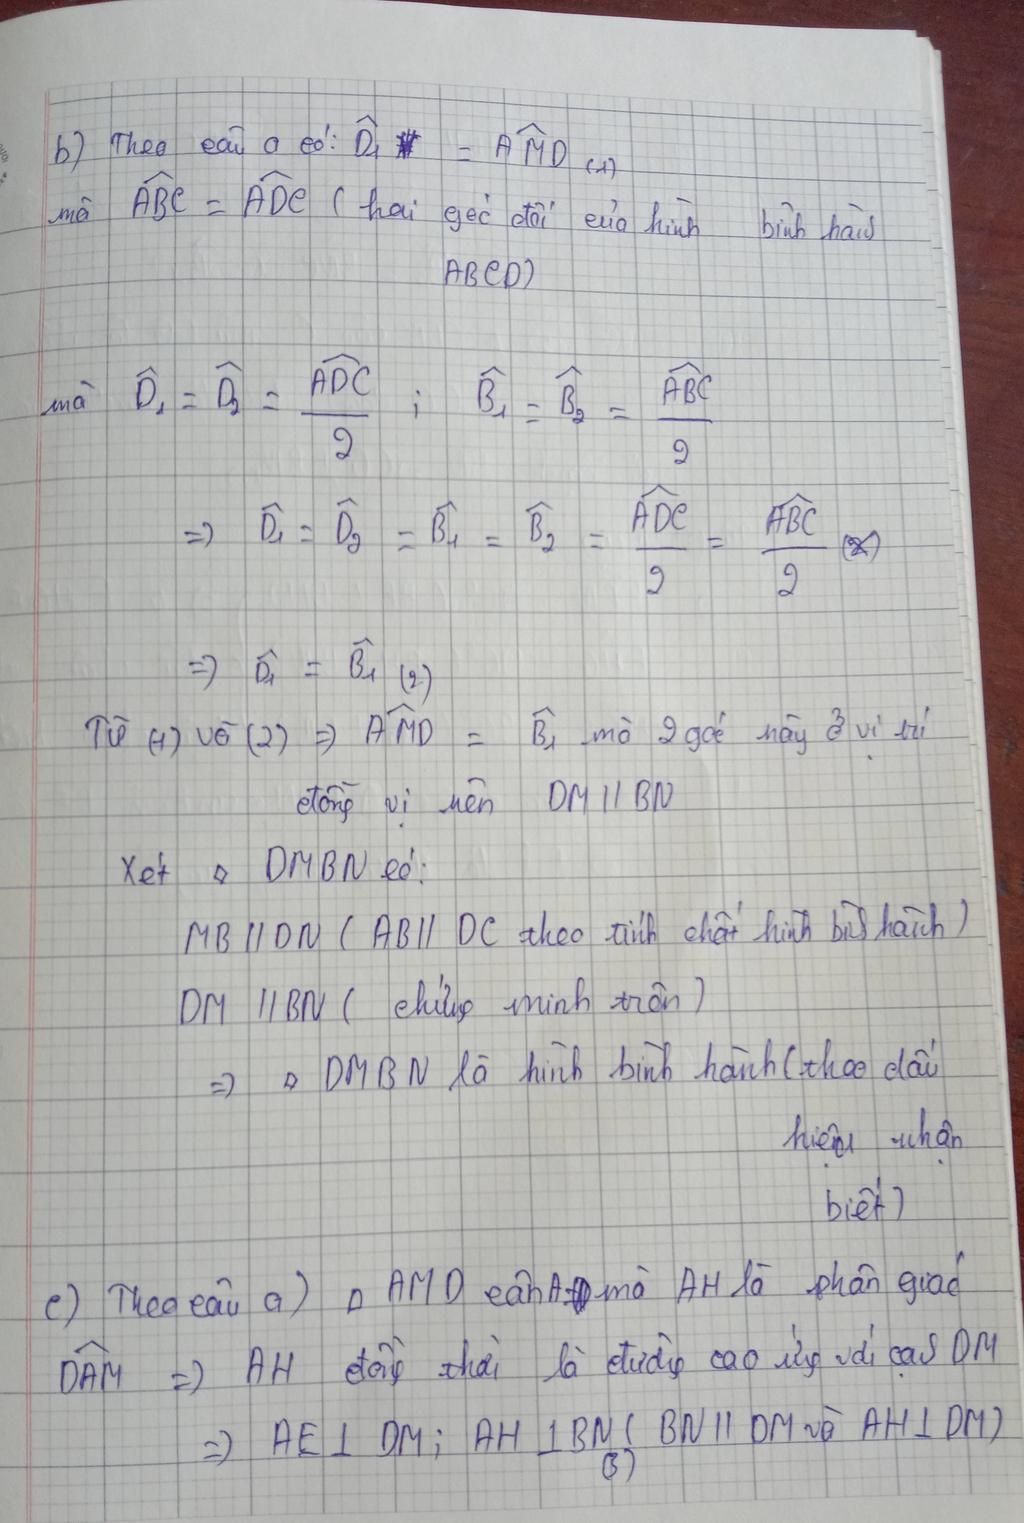 b) Theo câu a có: D̂₁ = AM̂D (1)
mà AB̂C = AD̂C ( hai góc đối của hình bình hành
ABCD)
mà D̂₁ = D̂₂ = AD̂C/2 ; B̂₁ = B̂₂ = AB̂C/2
=> D̂₁ = D̂₂ = B̂₁ = B̂₂ = AD̂C/2 = AB̂C/2
=> D̂₁ = B̂₁ (2)
Từ (1) và (2) => AM̂D = B̂₁ mà 2 góc này ở vị trí
đồng vị nên DM // BN
Xét ◇ DMBN có:
MB // DN ( AB // DC theo tính chất hình bình hành )
DM // BN ( chứng minh trên )
=> ◇ DMBN là hình bình hành ( theo dấu
hiệu nhận
biết )
c) Theo câu a) △ AMD cân A mà AH là phân giác
DÂM => AH đồng thời là đường cao ứng với cạnh DM
=> AE ⊥ DM ; AH ⊥ BN ( BN // DM và AH ⊥ DM )
(3)